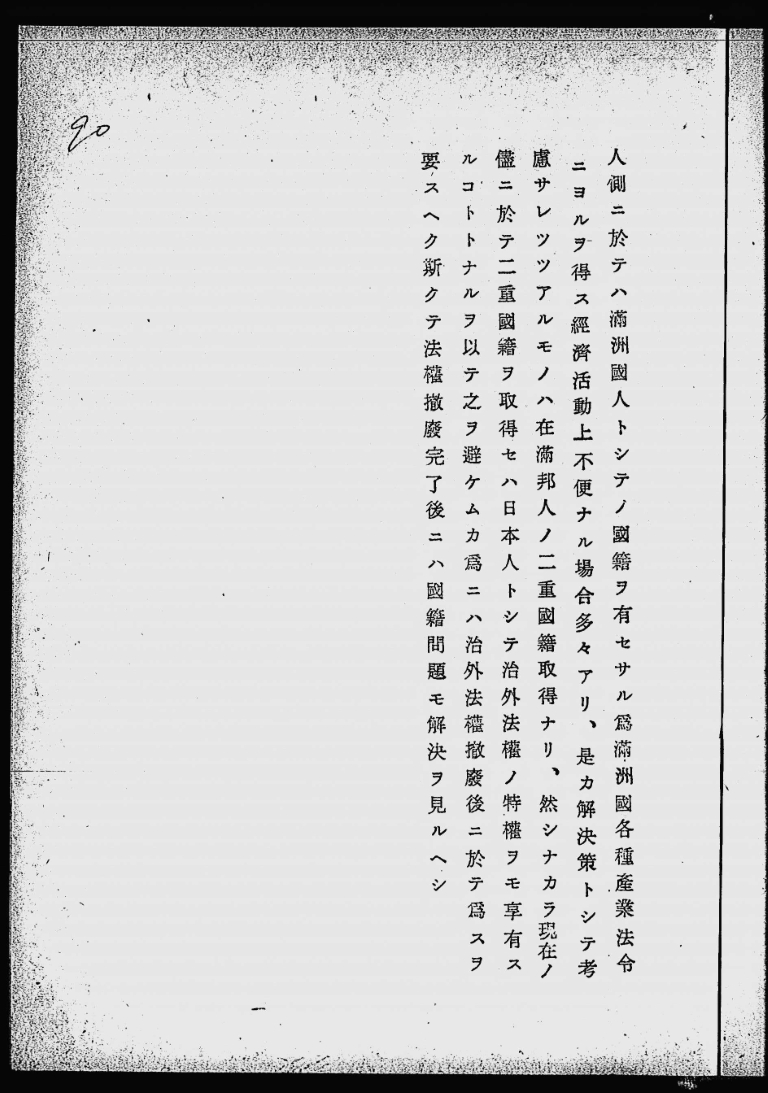 90
人側ニ於テハ滿洲國人トシテノ國籍ヲ有セサル爲滿洲國各種產業法令
ニヨルヲ得ス經濟活動上不便ナル場合多々アリ、是カ解決策トシテ考
慮サレツツアルモノハ在滿邦人ノ二重國籍取得ナリ、然シナカラ現在ノ
儘ニ於テ二重國籍ヲ取得セハ日本人トシテ治外法權ノ特權ヲモ享有ス
ルコトトナルヲ以テ之ヲ避ケムカ爲ニハ治外法權撤廢後ニ於テ爲スヲ
要スヘク斯クテ法權撤廢完了後ニハ國籍問題モ解決ヲ見ルヘシ